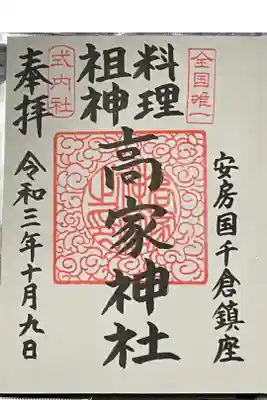 全国唯一
料理
祖神
式内社
奉拝
安房国千倉鎮座
高家神社
令和三年十月九日